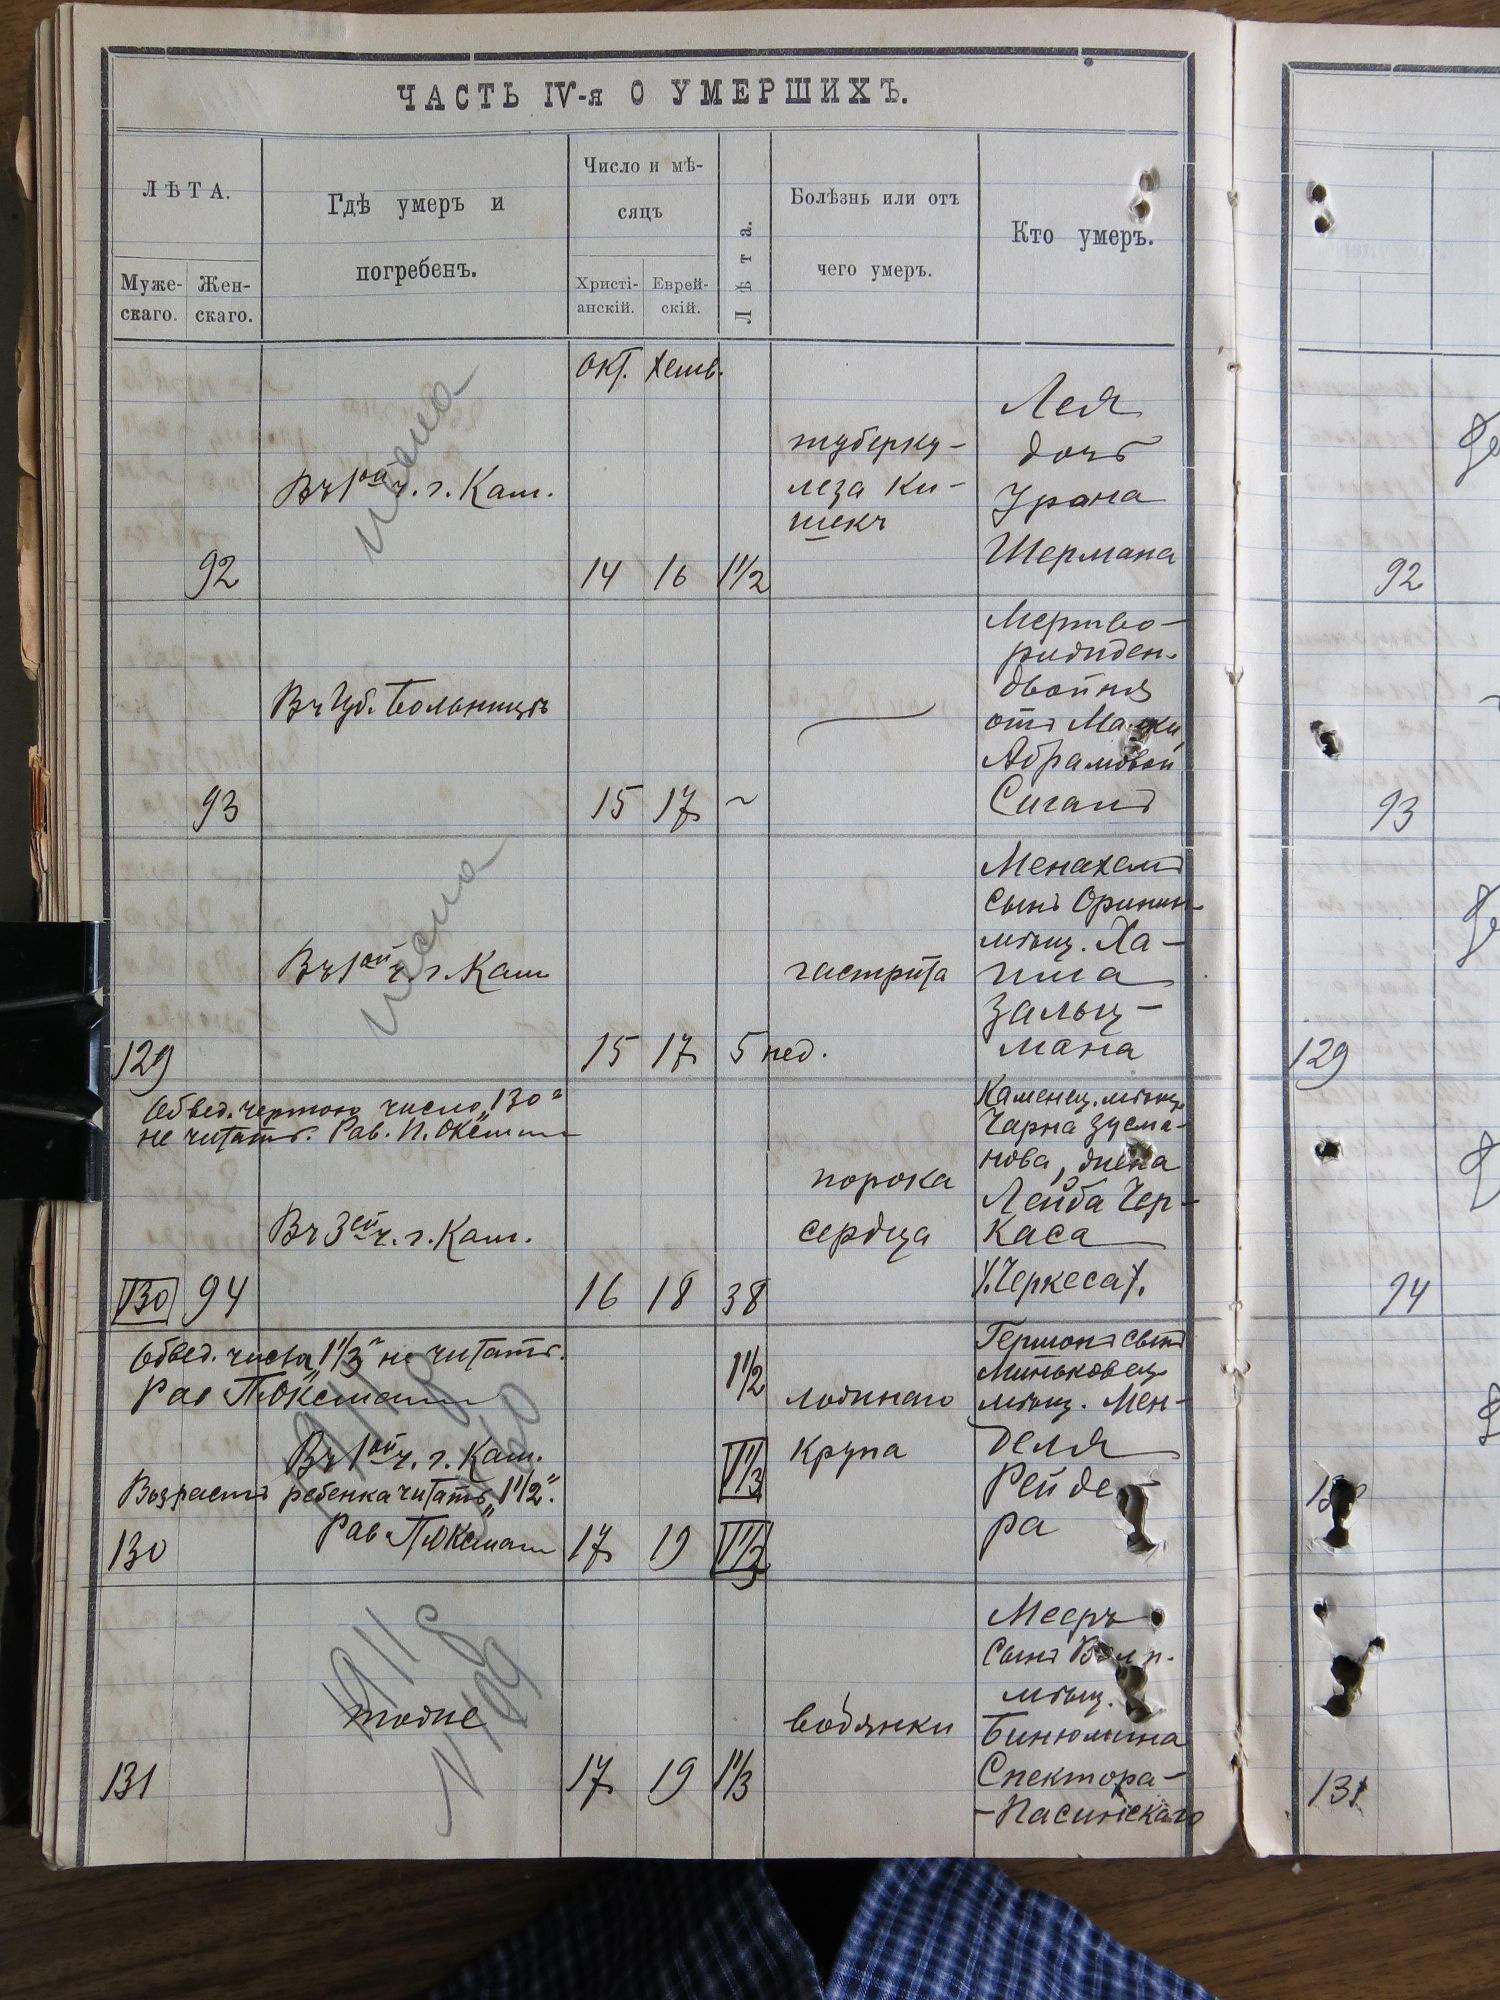 ЧАСТЬ IV-я О УМЕРШИХЪ.
ЛѢТА.
Муже-
скаго.
Жен-
скаго.
Гдѣ умеръ и
погребенъ.
Число и мѣ-
сяцъ
Христі-
анскій.
Еврей-
скій.
Лѣта.
Болѣзнь или отъ
чего умеръ.
Кто умеръ.
окт. Хешв.
92
Въ 1ой ч. г. Кам.
14 16 1 1/2
туберку-
леза ки-
шекъ
Лея
дочь
Шермана
92
93
Въ Губ. больницѣ
15 17 ~
Мертво-
рожден.
двойня
отъ
Абрамовой
Сигалъ
93
129
Въ 1ой ч. г. Кам
15 17 5 нед.
гастрита
Менахемъ
сынъ Оринин.
мѣщ. Ха-
има
Зальц-
мана
129
Обвед. чертою число „130“
не читать. Рав. П. Оксман
130 94
Въ 3ей ч. г. Кам.
16 18 38
порока
сердца
Каменец. мѣщ.
Чарна Зусма-
нова, жена
Лейба Чер-
каса
/.Черкеса/.
94
Обвед. числа „1 1/3“ не читать.
Рав П. Оксман
Въ 1ой ч. г. Кам.
Возрастъ ребенка читать „1 1/2“.
Рав П. Оксман
130
17 19
1 1/2
1 1/3
1 1/3
ложнаго
крупа
сынъ
Миньковец.
мѣщ. Мен-
деля
Рейде-
ра
1911
131
тоже
17 19 1 1/3
водянки
Мееръ
сынъ
мѣщ.
Бинюмина
Спектора-
-Пасинскаго
1911
N 109
131